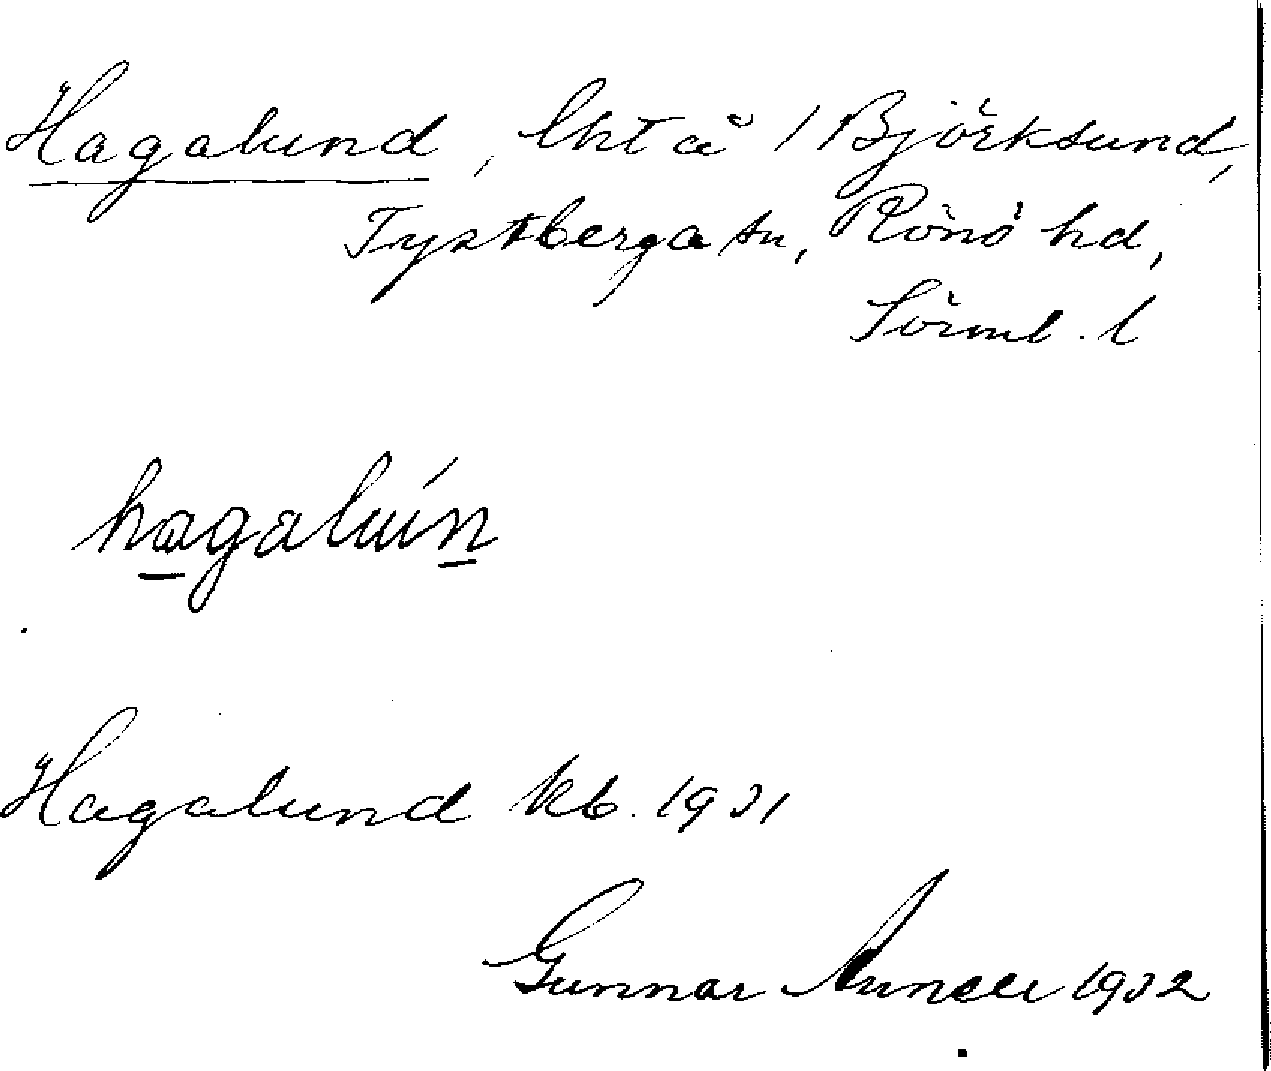 Hagalund, lht å / Björksund,
Tystberga sn, Rönö hd,
Sörml. l
hagalún
Hagalund kb. 1931
Gunnar 1932